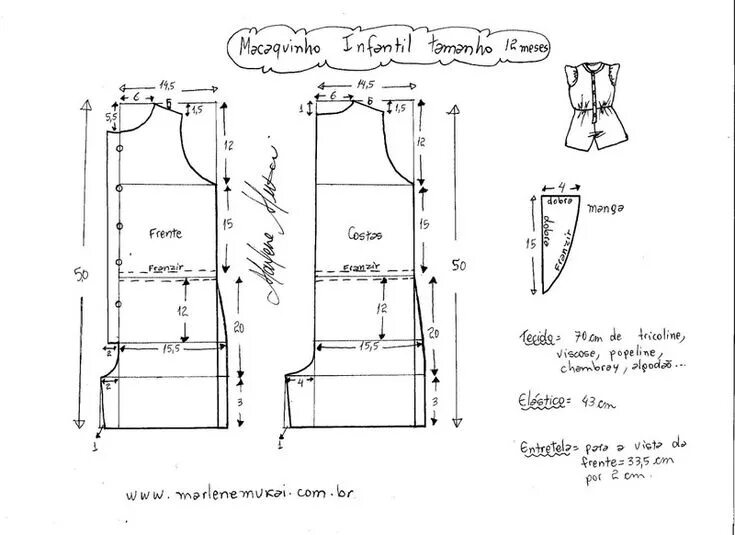 Macaquinho Infantil tamanho 12 meses
14,5
6
5
1,5
5,5
12
15
Frente
Franzir
50
12
20
15,5
2
2
3
1
Marlene Mukai
14,5
6
5
1
1,5
12
15
Costas
Franzir
50
12
20
15,5
4
3
1
4
dobra
manga
15
dobra
Franzir
Tecido = 70 cm de tricoline,
viscose, popeline,
chambray, algodão...
Elástico = 43 cm
Entretela = para a vista da
frente = 33,5 cm
por 2 cm.
www.marlenemukai.com.br